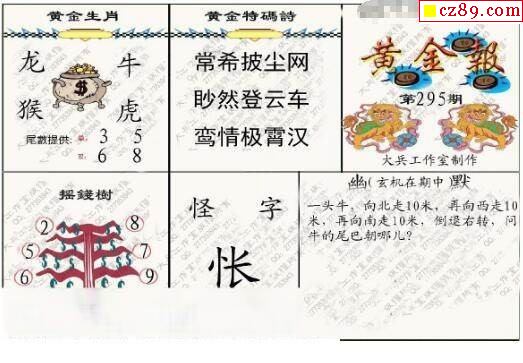 cz89.com
黄金生肖
龙 牛
猴 虎
$
尾數提供: 单: 3 5
双: 6 8
黄金特碼詩
常希披尘网
眇然登云车
鸾情极霄汉
黄金報
第295期
大兵工作室制作
摇錢樹
2 8
5 7
6 9
怪 字
怅
幽(玄机在期中 默
一头牛，向北走10米，再向西走10
米，再向南走10米，倒退右转，问
牛的尾巴朝哪儿？